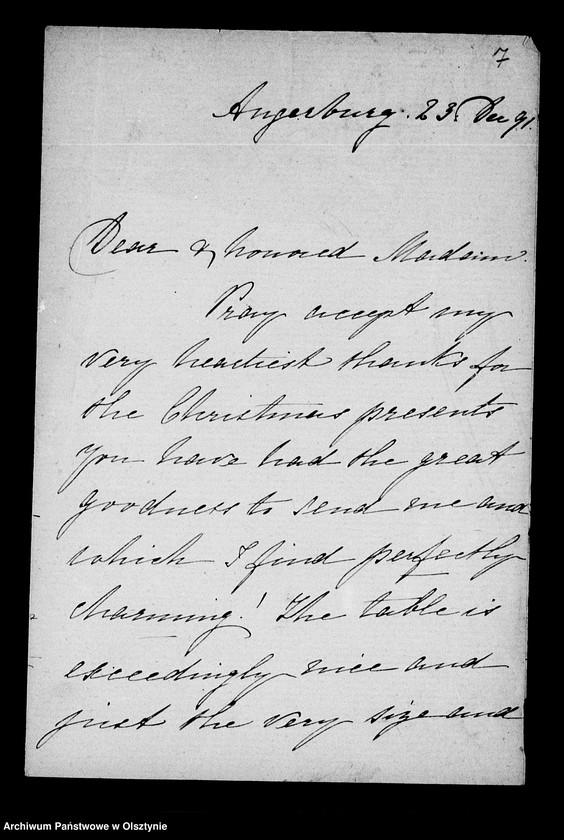 7
Angerburg. 23. Dec 91.
Dear & honoured Madam.
Pray accept my
very heartiest thanks for
the Christmas presents
you have had the great
goodness to send me and
which I find perfectly
charming! The table is
exceedingly nice and
just the very size and
Archiwum Państwowe w Olsztynie